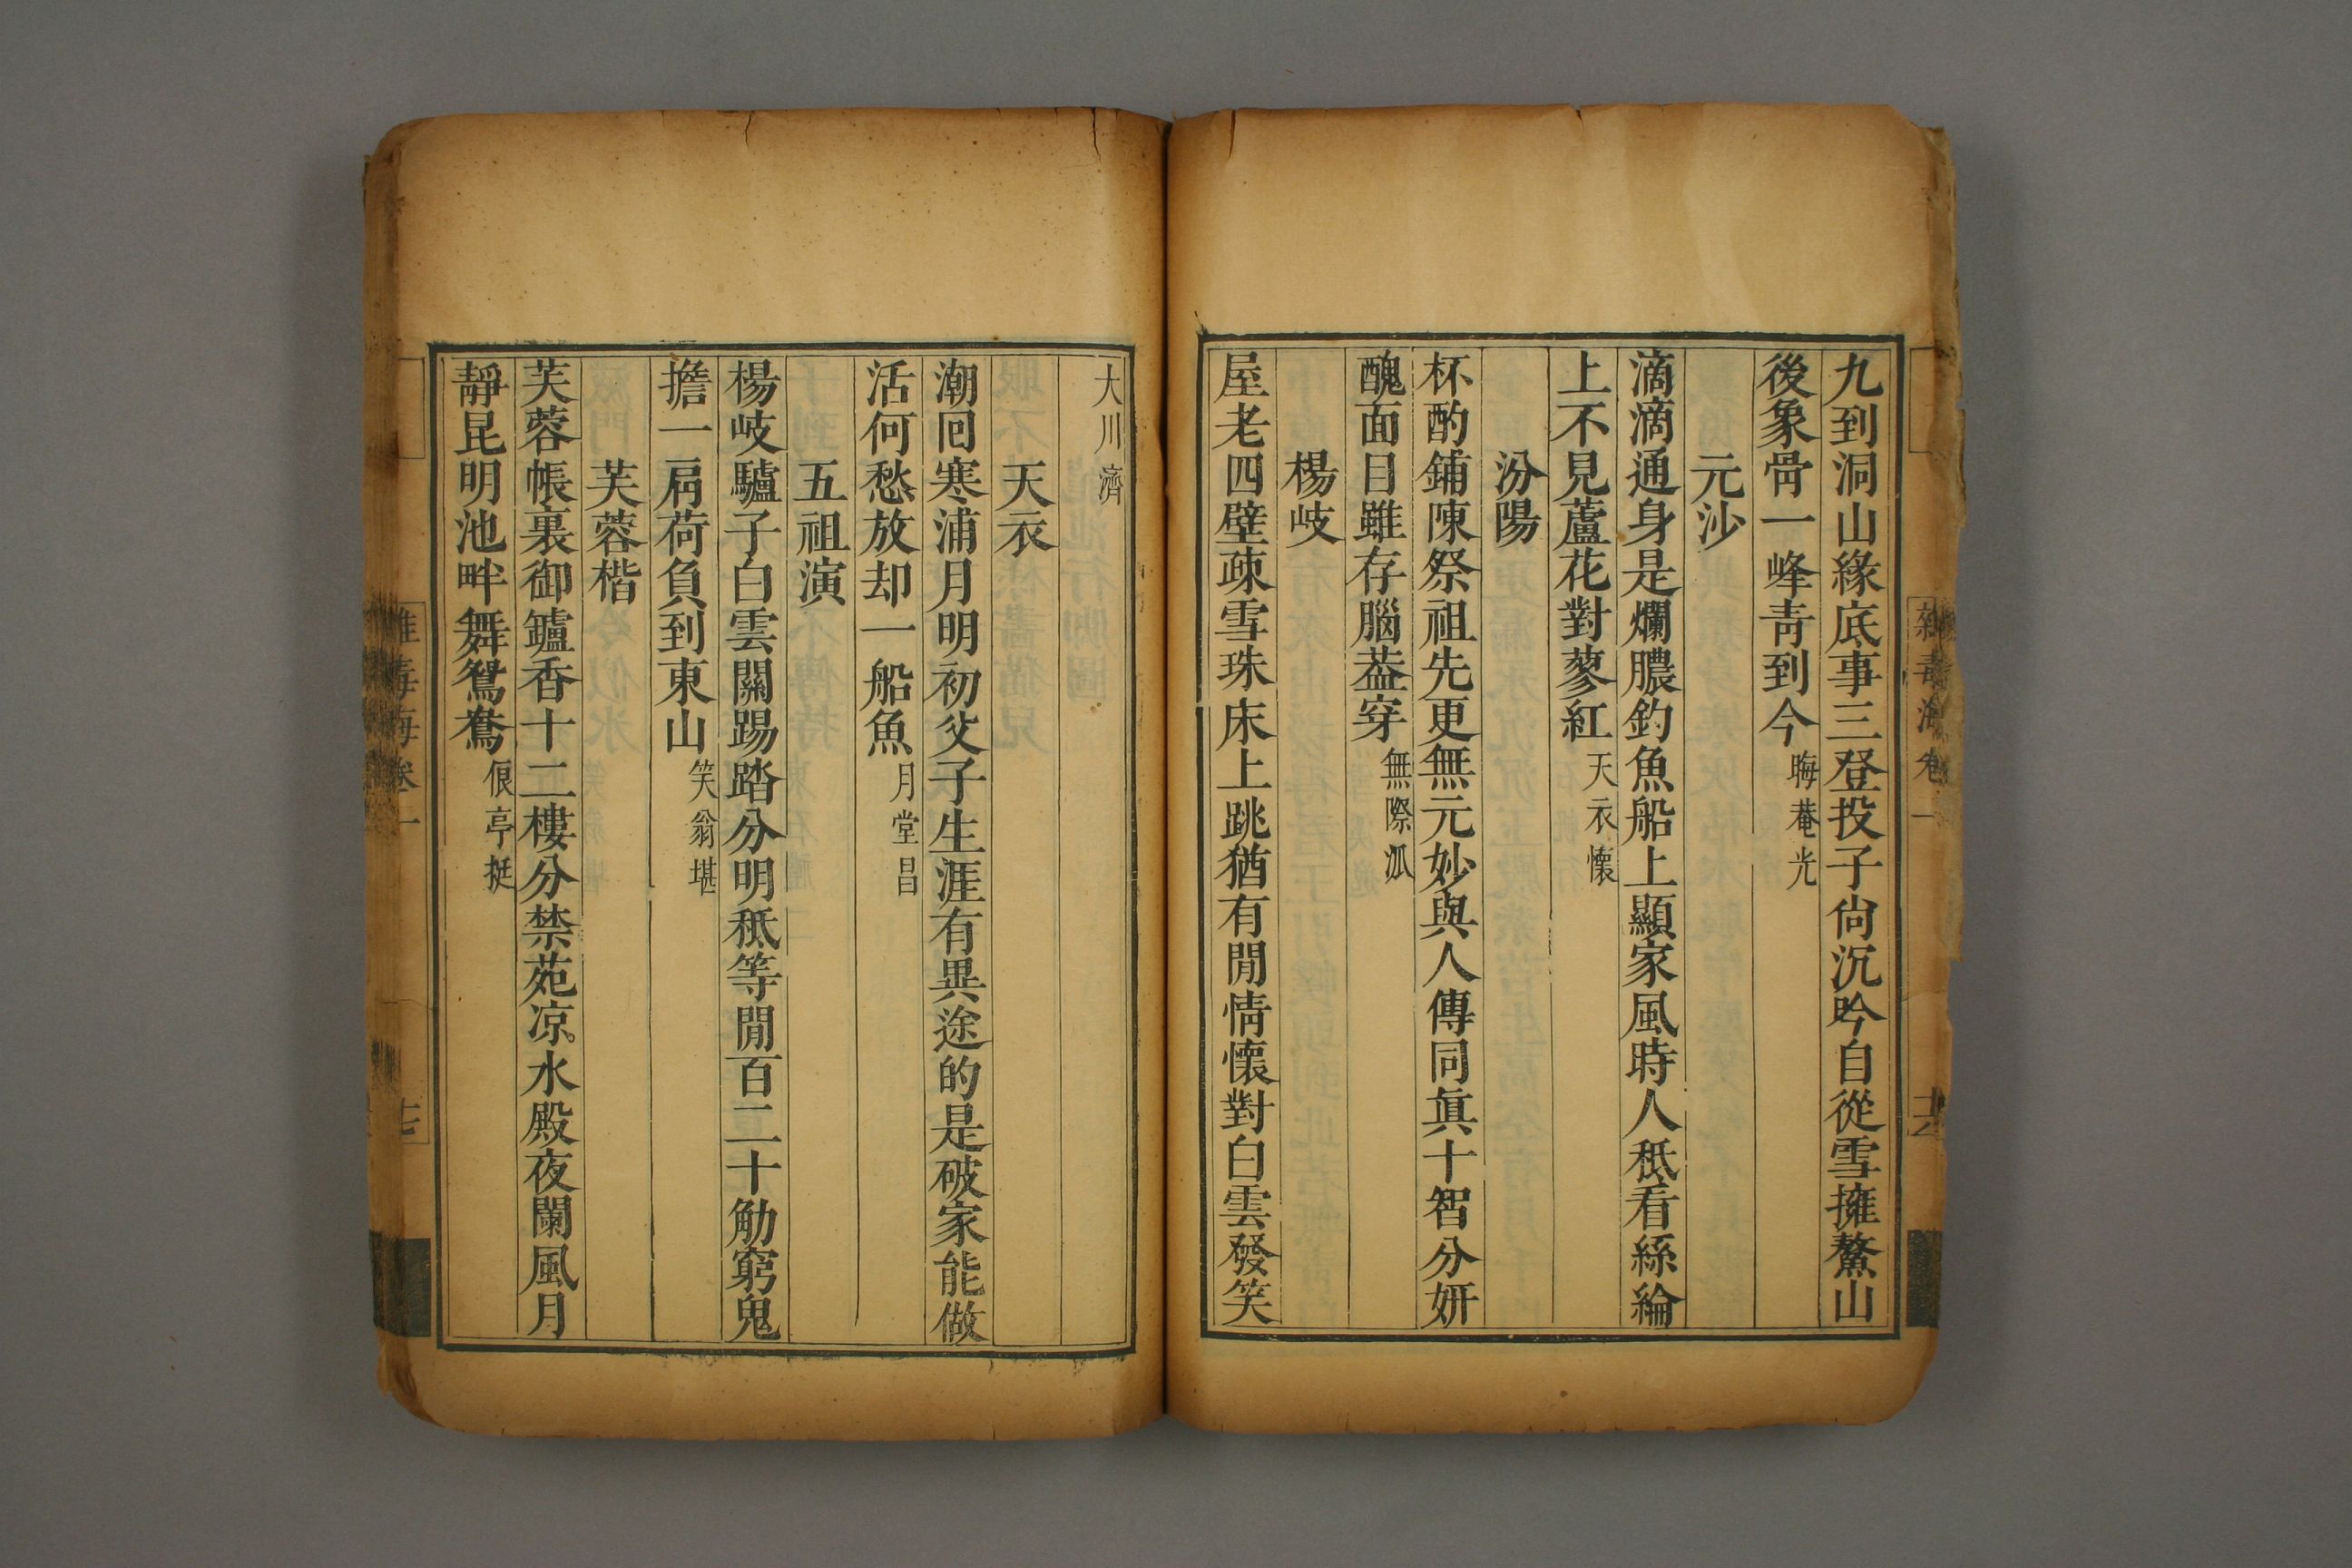 九到洞山緣底事三登投子尙沉吟自從雪擁鰲山
後象骨一峰靑到今晦菴光
元沙
滴滴通身是爛膿釣魚船上顯家風時人秪看絲綸
上不見蘆花對蓼紅天衣懷
汾陽
杯酌鋪陳祭祖先更無元妙與人傳同眞十智分姸
醜面目雖存腦葢穿無際派
楊岐
屋老四壁疎雪珠床上跳猶有閒情懷對白雲發笑
大川濟
天衣
潮囘寒浦月明初父子生涯有異途的是破家能做
活何愁放却一船魚月堂昌
五祖演
楊岐驢子白雲關踢踏分明秪等閒百二十觔窮鬼
擔一肩荷負到東山笑翁堪
芙蓉楷
芙蓉帳裏御鑪香十二樓分禁苑凉水殿夜闌風月
靜昆明池畔舞鴛鴦偃亭挺
雜毒海卷一